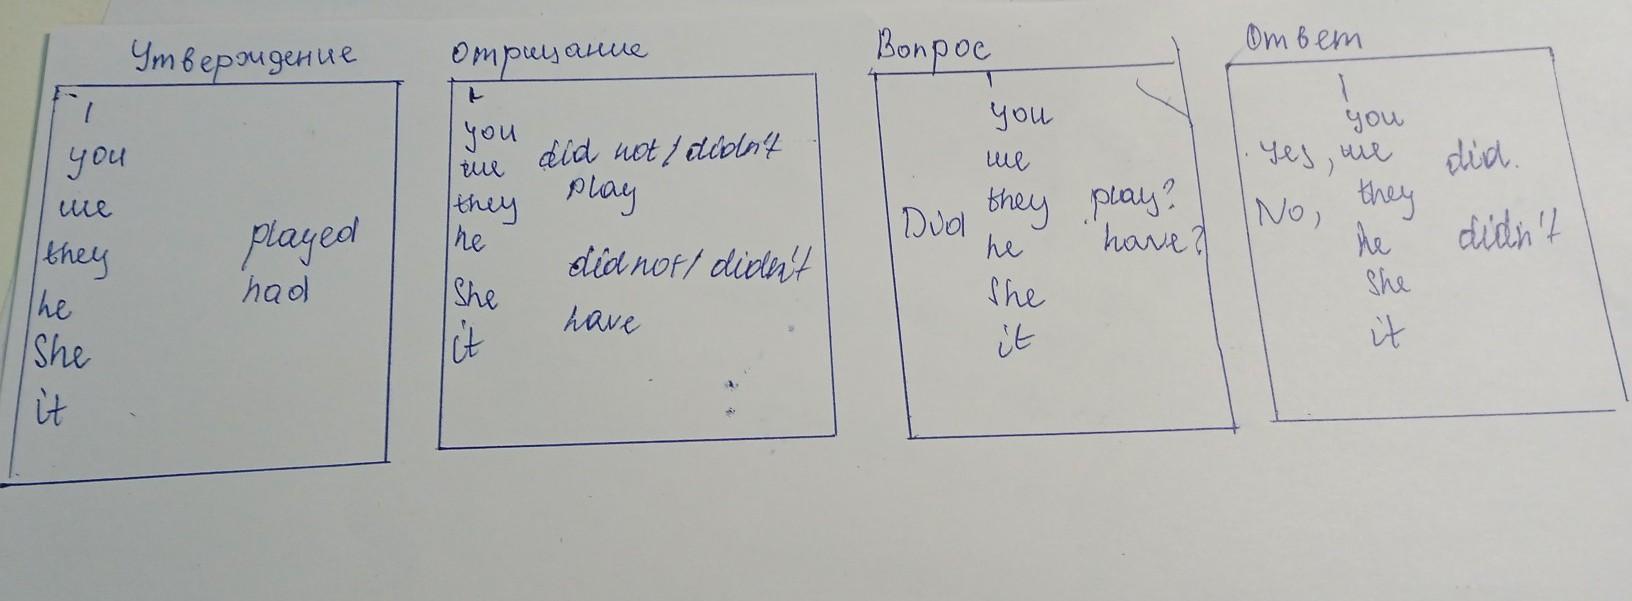 Утверждение
I
you
we
they
he
She
it
played
had
Отрицание
I
you
we
they
he
She
it
did not / didn't
play
did not / didn't
have
Вопрос
Did
I
you
we
they
he
She
it
play?
have?
Ответ
Yes,
No,
I
you
we
they
he
She
it
did.
didn't